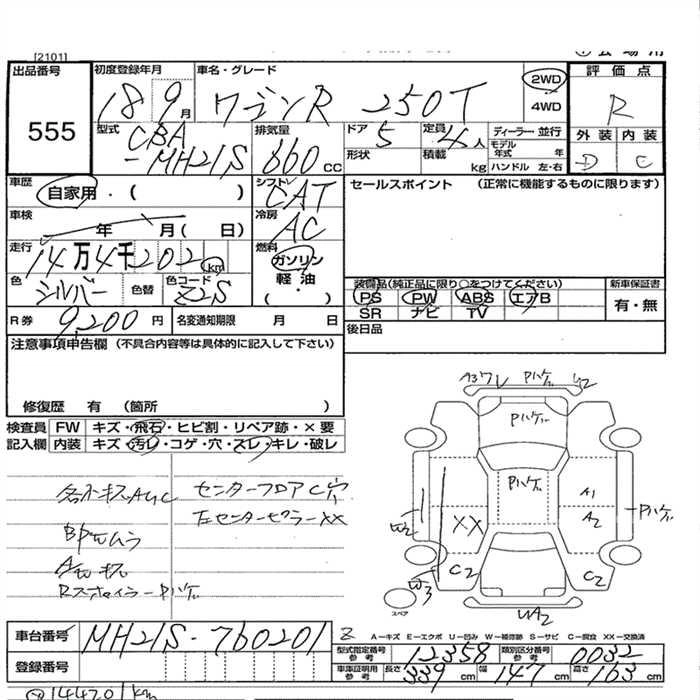 [2101]
出品番号
555
初度登録年月
18 9月
車名・グレード
ワゴンR 250T
2WD
4WD
評価点
R
外装 内装
D C
型式
CBA
-MH21S
排気量
660cc
ドア 5
形状
定員 4人
積載 kg
ディーラー・並行
モデル年式 年
ハンドル 左・右
車歴
自家用・( )
シフト
CAT
セールスポイント (正常に機能するものに限ります)
車検
年 月( 日)
冷房
AC
走行
14万4千202km
燃料
ガソリン
軽油
( ・ )
色
シルバー
色替
色コード
Z2S
装備品(純正品に限り○をつけてください)
PS PW ABS エアB
SR ナビ TV
新車保証書
有・無
R券 9,200円
名変通知期限 月 日
後日品
注意事項申告欄 (不具合内容等は具体的に記入して下さい)
修復歴 有 (箇所 )
検査員 FW キズ・飛石・ヒビ割・リペア跡・×要
記入欄 内装 キズ・汚レ・コゲ・穴・スレ・キレ・破レ
センターフロアC穴
左センターピラーXX
RスポイラーPハゲ
A3 Pハゲ
Pハゲ
Pハゲ
A1
A2
Pハゲ
W2
XX
C2
C2
W3
スペア
WA2
A-キズ E-エクボ U-凹み W-補修跡 S-サビ C-腐食 XX-交換済
車台番号 MH21S-760201
登録番号
型式指定番号
参考
12358
類別区分番号
参考
0032
車庫証明用
参考
長さ 339cm
幅 147cm
高さ 163cm